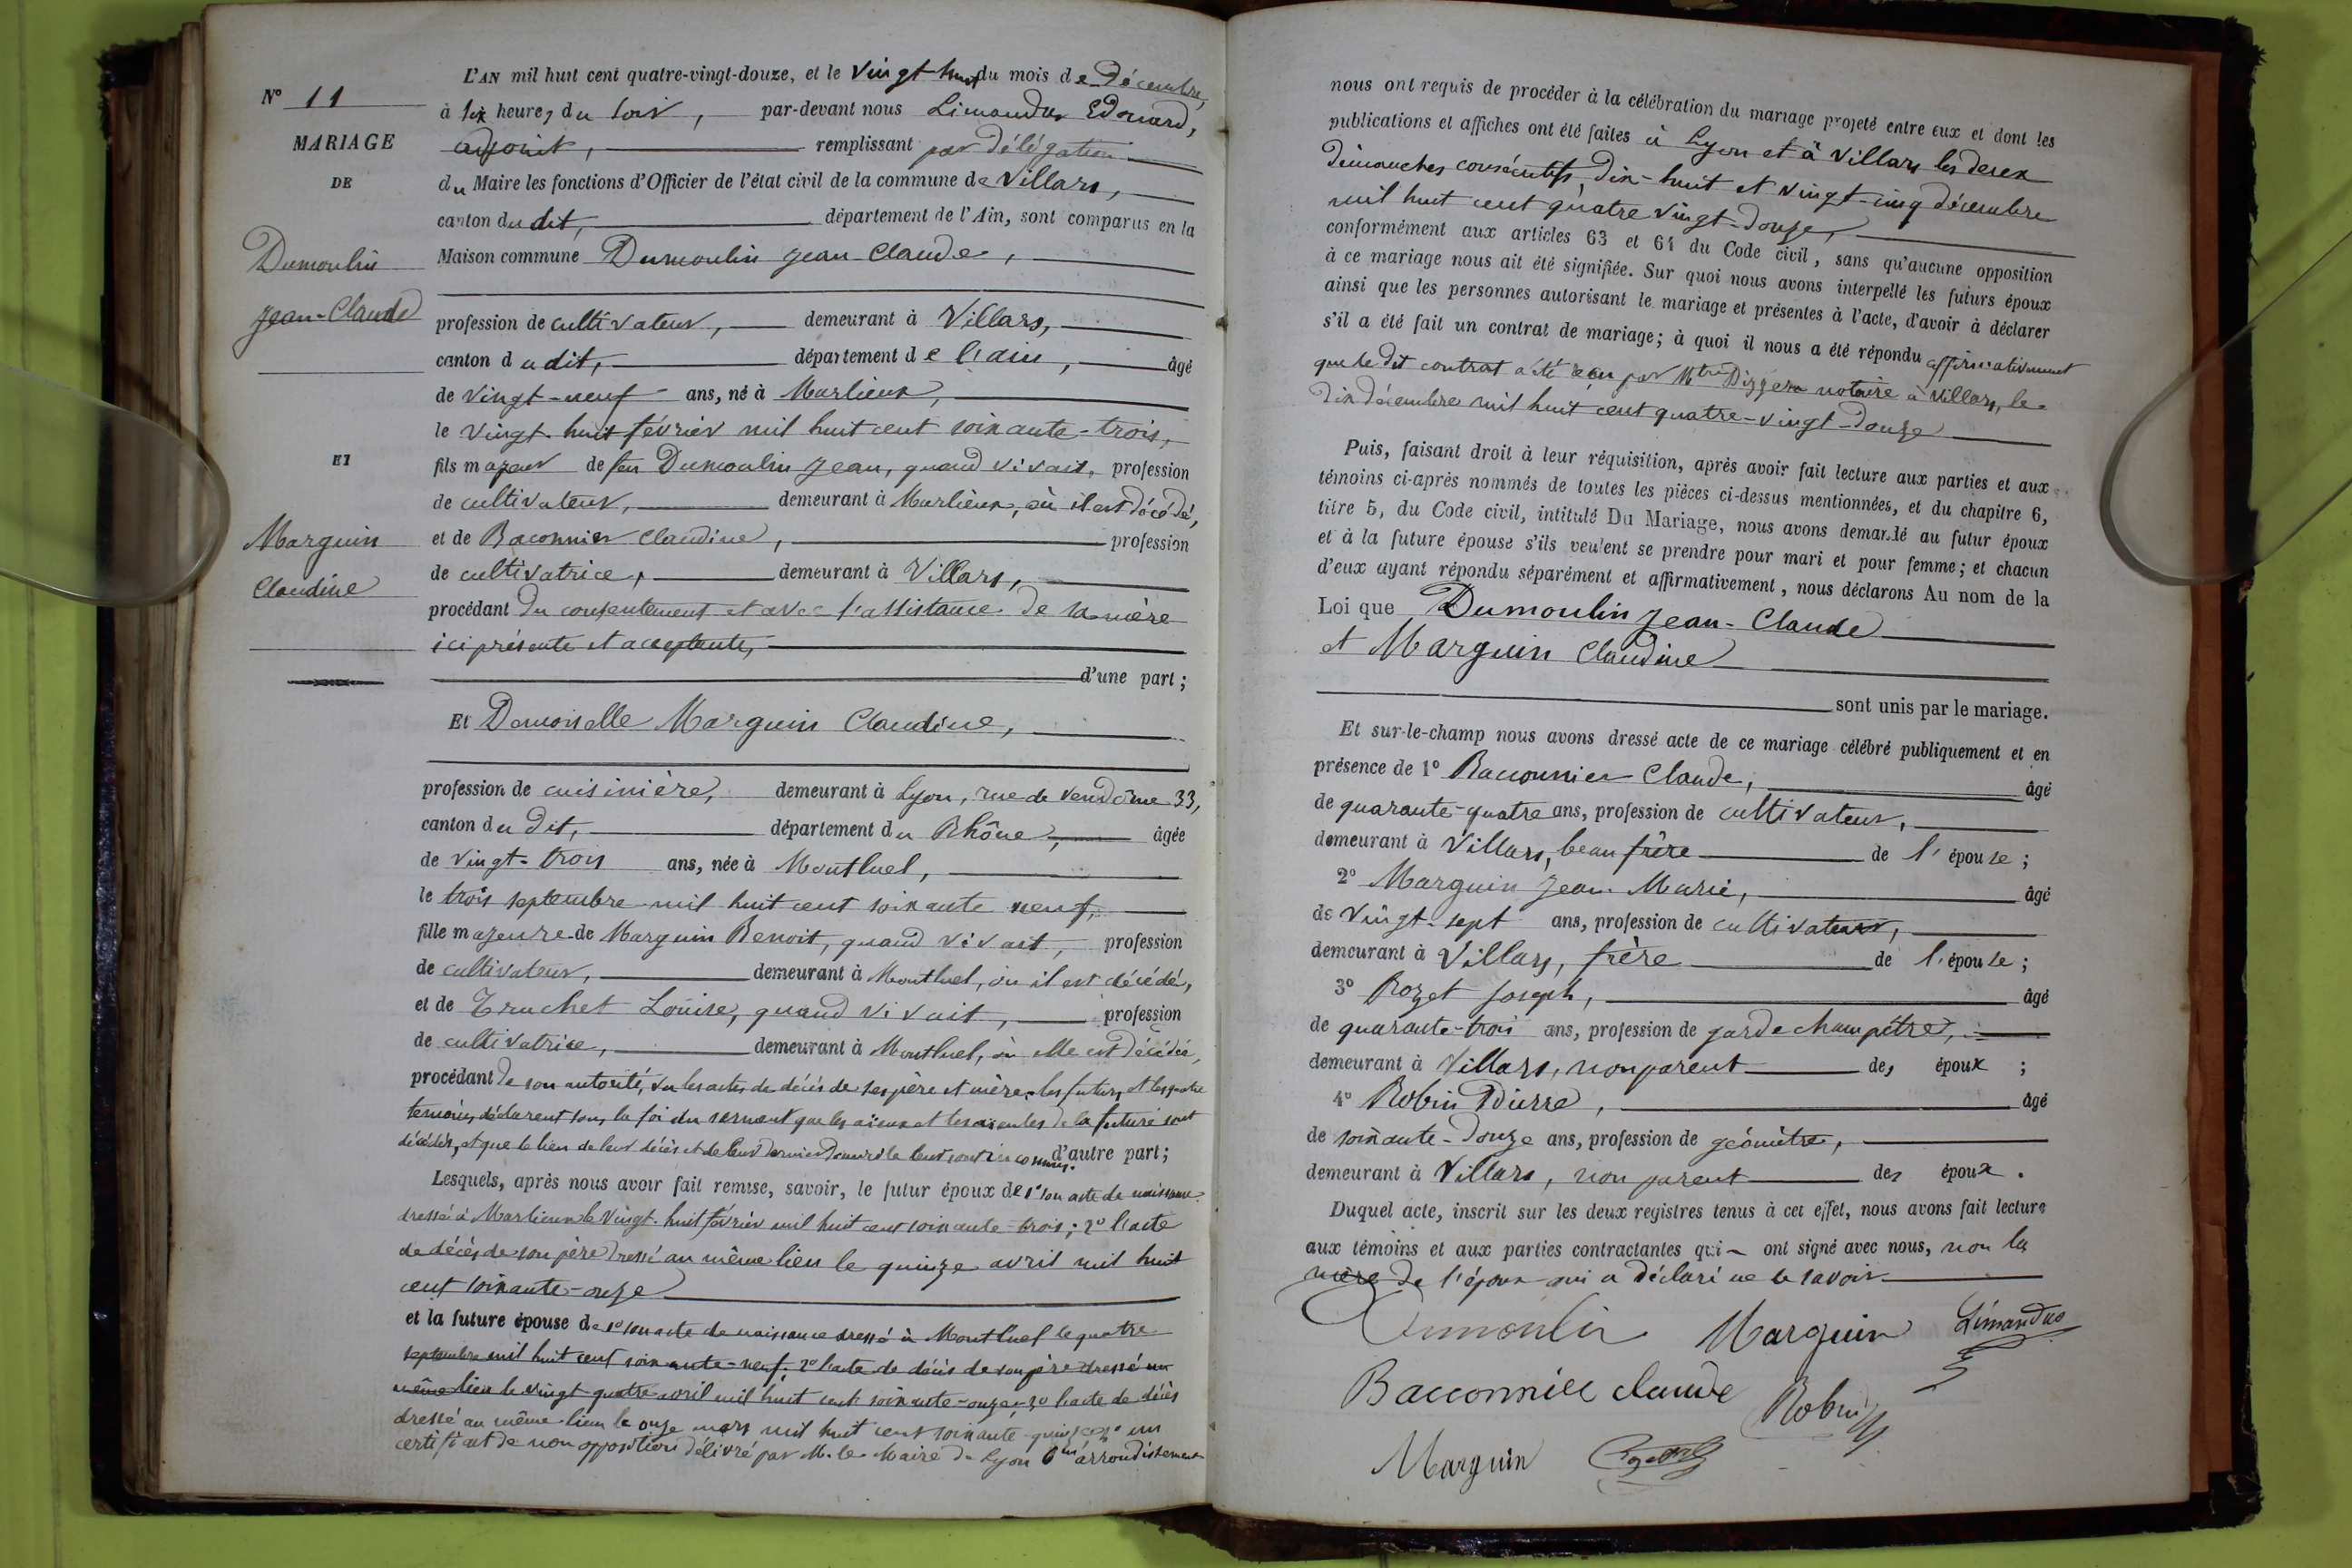 L'AN mil huit cent quatre-vingt-douze, et le vingt-huit du mois de Décembre,
N° 11
à six heures du soir, par-devant nous Limandas Edouard,
MARIAGE
adjoint, remplissant par délégation
DE
du Maire les fonctions d'Officier de l'état civil de la commune de Villars,
canton du dit, département de l'Ain, sont comparus en la
Dumoulin
Maison commune Dumoulin Jean-Claude,
Jean-Claude
profession de cultivateur, demeurant à Villars,
canton du dit, département de l'ain, âgé
de vingt-neuf ans, né à Marlieux,
le vingt-huit février mil huit cent soixante-trois,
ET
fils majeur de feu Dumoulin Jean, quand vivait, profession
de cultivateur, demeurant à Marlieux, où il est décédé,
Marguin
et de Baconnier Claudine, profession
Claudine
de cultivatrice, demeurant à Villars,
procédant du consentement et avec l'assistance de sa mère
ici présente et acceptante,
d'une part;
Et Demoiselle Marguin Claudine,
profession de cuisinière, demeurant à Lyon, rue de Vendôme 33,
canton du dit, département du Rhône, âgée
de vingt-trois ans, née à Montluel,
le trois septembre mil huit cent soixante neuf,
fille majeure de Marguin Benoit, quand vivait, profession
de cultivateur, demeurant à Montluel, où il est décédé,
et de Truchet Louise, quand vivait, profession
de cultivatrice, demeurant à Montluel, où elle est décédée,
procédant de son autorité, vu les actes de décès de ses père et mère. les futurs et les quatre
témoins déclarent sous la foi du serment que les aïeux et les aïeules de la future sont
décédés, et que le lieu de leur décès et de leur dernier domicile leur sont inconnus. d'autre part;
Lesquels, après nous avoir fait remise, savoir, le futur époux de 1° son acte de naissance
dressé à Marlieux le vingt-huit février mil huit cent soixante-trois; 2° l'acte
de décès de son père dressé au même lieu le quinze avril mil huit
cent soixante-onze
et la future épouse de 1° son acte de naissance dressé à Montluel le quatre
septembre mil huit cent soixante-neuf; 2° l'acte de décès de son père dressé au
même lieu le vingt quatre avril mil huit cent soixante-onze 3° l'acte de décès
dressé au même lieu le onze mars mil huit cent soixante-quinze un
certificat de non opposition délivré par M. le Maire de Lyon 6me arrondissement
nous ont requis de procéder à la célébration du mariage projeté entre eux et dont les
publications et affiches ont été faites à Lyon et à Villars les deux
dimanches consécutifs, dix-huit et vingt-cinq décembre
mil huit cent quatre vingt-douze,
conformément aux articles 63 et 64 du Code civil, sans qu'aucune opposition
à ce mariage nous ait été signifiée. Sur quoi nous avons interpellé les futurs époux
ainsi que les personnes autorisant le mariage et présentes à l'acte, d'avoir à déclarer
s'il a été fait un contrat de mariage; à quoi il nous a été répondu affirmativement
que le dit contrat a été reçu par Mtre notaire à Villars, le
dix décembre mil huit cent quatre-vingt-douze
Puis, faisant droit à leur réquisition, après avoir fait lecture aux parties et aux
témoins ci-après nommés de toutes les pièces ci-dessus mentionnées, et du chapitre 6,
titre 5, du Code civil, intitulé Du Mariage, nous avons demandé au futur époux
et à la future épouse s'ils veulent se prendre pour mari et pour femme; et chacun
d'eux ayant répondu séparément et affirmativement, nous déclarons Au nom de la
Loi que Dumoulin Jean-Claude
et Marguin Claudine
sont unis par le mariage.
Et sur-le-champ nous avons dressé acte de ce mariage célébré publiquement et en
présence de 1° Baconnier Claude, âgé
de quarante-quatre ans, profession de cultivateur,
demeurant à Villars, beau frère de l'épouse;
2° Marguin Jean Marie, âgé
de vingt-sept ans, profession de cultivateur,
demeurant à Villars, frère de l'épouse;
3° Rozet Joseph, âgé
de quarante-trois ans, profession de garde champêtre,
demeurant à Villars, non parent des époux;
4° Robin Pierre, âgé
de soixante-douze ans, profession de géomètre,
demeurant à Villars, non parent des époux.
Duquel acte, inscrit sur les deux registres tenus à cet effet, nous avons fait lecture
aux témoins et aux parties contractantes qui ont signé avec nous, non la
mère de l'époux qui a déclaré ne le savoir
Dumoulin Marguin Limandas
Bacconnier claude Robin
Marguin